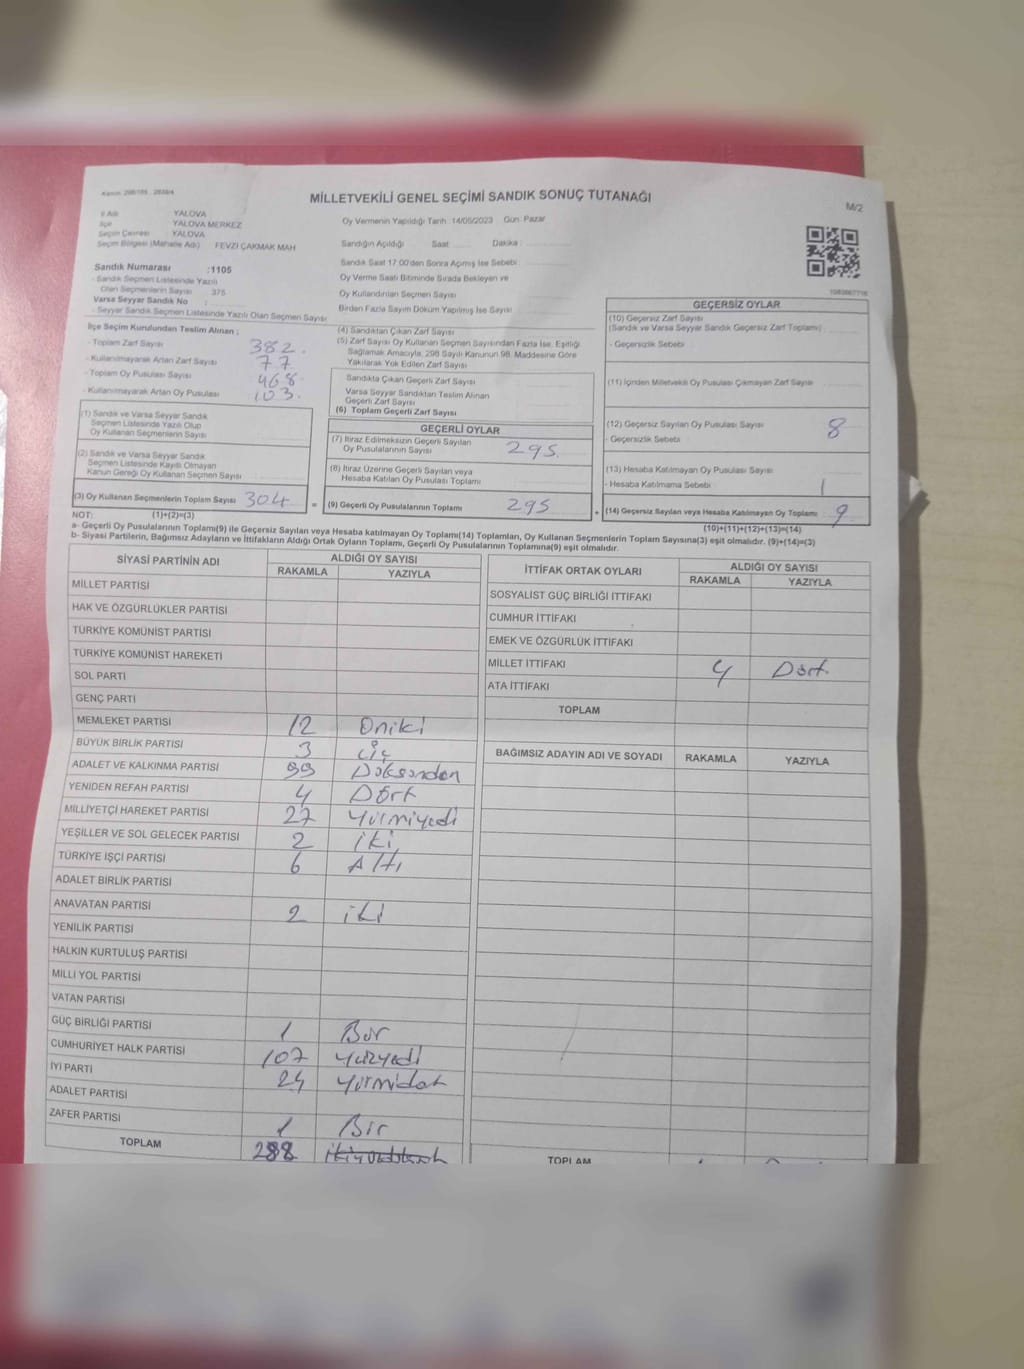 Kanun: 298/105 , 2839/4
MİLLETVEKİLİ GENEL SEÇİMİ SANDIK SONUÇ TUTANAĞI
M/2
İl Adı YALOVA
İlçe YALOVA MERKEZ
Seçim Çevresi YALOVA
Seçim Bölgesi (Mahalle Adı) FEVZİ ÇAKMAK MAH
Sandık Numarası :1105
- Sandık Seçmen Listesinde Yazılı
Olan Seçmenlerin Sayısı : 375
Varsa Seyyar Sandık No :
- Seyyar Sandık Seçmen Listesinde Yazılı Olan Seçmen Sayısı
Oy Vermenin Yapıldığı Tarih 14/05/2023 Gün: Pazar
Sandığın Açıldığı Saat Dakika :
Sandık Saat 17:00'den Sonra Açımış İse Sebebi
Oy Verme Saati Bitiminde Sırada Bekleyen ve
Oy Kullandırılan Seçmen Sayısı
Birden Fazla Sayım Döküm Yapılmış İse Sayısı
İlçe Seçim Kurulundan Teslim Alınan ;
- Toplam Zarf Sayısı 382
- Kullanılmayarak Artan Zarf Sayısı 77
- Toplam Oy Pusulası Sayısı 468
- Kullanılmayarak Artan Oy Pusulası 103
(1) Sandık ve Varsa Seyyar Sandık
Seçmen Listesinde Yazılı Olup
Oy Kullanan Seçmenlerin Sayısı
(2) Sandık ve Varsa Seyyar Sandık
Seçmen Listesinde Kayıtlı Olmayan
Kanun Gereği Oy Kullanan Seçmen Sayısı
(3) Oy Kullanan Seçmenlerin Toplam Sayısı 304 =
(4) Sandıktan Çıkan Zarf Sayısı
(5) Zarf Sayısı Oy Kullanan Seçmen Sayısından Fazla İse, Eşitliği
Sağlamak Amacıyla, 298 Sayılı Kanunun 98. Maddesine Göre
Yakılarak Yok Edilen Zarf Sayısı
Sandıkta Çıkan Geçerli Zarf Sayısı
Varsa Seyyar Sandıktan Teslim Alınan
Geçerli Zarf Sayısı
(6) Toplam Geçerli Zarf Sayısı
GEÇERLİ OYLAR
(7) İtiraz Edilmeksizin Geçerli Sayılan
Oy Pusulalarının Sayısı 295
(8) İtiraz Üzerine Geçerli Sayılan veya
Hesaba Katılan Oy Pusulası Toplamı
(9) Geçerli Oy Pusulalarının Toplamı 295 +
GEÇERSİZ OYLAR
(10) Geçersiz Zarf Sayısı
(Sandık ve Varsa Seyyar Sandık Geçersiz Zarf Toplamı)
- Geçersizlik Sebebi
(11) İçinden Milletvekili Oy Pusulası Çıkmayan Zarf Sayısı
(12) Geçersiz Sayılan Oy Pusulası Sayısı 8
- Geçersizlik Sebebi
(13) Hesaba Katılmayan Oy Pusulası Sayısı
- Hesaba Katılmama Sebebi 1
(14) Geçersiz Sayılan veya Hesaba Katılmayan Oy Toplamı 9
NOT: (1)+(2)=(3) (10)+(11)+(12)+(13)=(14)
a- Geçerli Oy Pusulalarının Toplamı(9) ile Geçersiz Sayılan veya Hesaba katılmayan Oy Toplamı(14) Toplamları, Oy Kullanan Seçmenlerin Toplam Sayısına(3) eşit olmalıdır. (9)+(14)=(3)
b- Siyasi Partilerin, Bağımsız Adayların ve İttifakların Aldığı Ortak Oyların Toplamı, Geçerli Oy Pusulalarının Toplamına(9) eşit olmalıdır.
SİYASİ PARTİNİN ADI ALDIĞI OY SAYISI
RAKAMLA YAZIYLA
MİLLET PARTİSİ
HAK VE ÖZGÜRLÜKLER PARTİSİ
TÜRKİYE KOMÜNİST PARTİSİ
TÜRKİYE KOMÜNİST HAREKETİ
SOL PARTİ
GENÇ PARTİ
MEMLEKET PARTİSİ 12 Oniki
BÜYÜK BİRLİK PARTİSİ 3 üç
ADALET VE KALKINMA PARTİSİ 99
YENİDEN REFAH PARTİSİ 4 Dört
MİLLİYETÇİ HAREKET PARTİSİ 27 Yirmiyedi
YEŞİLLER VE SOL GELECEK PARTİSİ 2 iki
TÜRKİYE İŞÇİ PARTİSİ 6 Altı
ADALET BİRLİK PARTİSİ
ANAVATAN PARTİSİ 2 iki
YENİLİK PARTİSİ
HALKIN KURTULUŞ PARTİSİ
MİLLİ YOL PARTİSİ
VATAN PARTİSİ
GÜÇ BİRLİĞİ PARTİSİ 1 Bir
CUMHURİYET HALK PARTİSİ 107 Yüzyedi
İYİ PARTİ 24 Yirmidört
ADALET PARTİSİ
ZAFER PARTİSİ 1 Bir
TOPLAM 288
İTTİFAK ORTAK OYLARI ALDIĞI OY SAYISI
RAKAMLA YAZIYLA
SOSYALİST GÜÇ BİRLİĞİ İTTİFAKI
CUMHUR İTTİFAKI
EMEK VE ÖZGÜRLÜK İTTİFAKI
MİLLET İTTİFAKI 4 Dört
ATA İTTİFAKI
TOPLAM
BAĞIMSIZ ADAYIN ADI VE SOYADI RAKAMLA YAZIYLA
TOPLAM